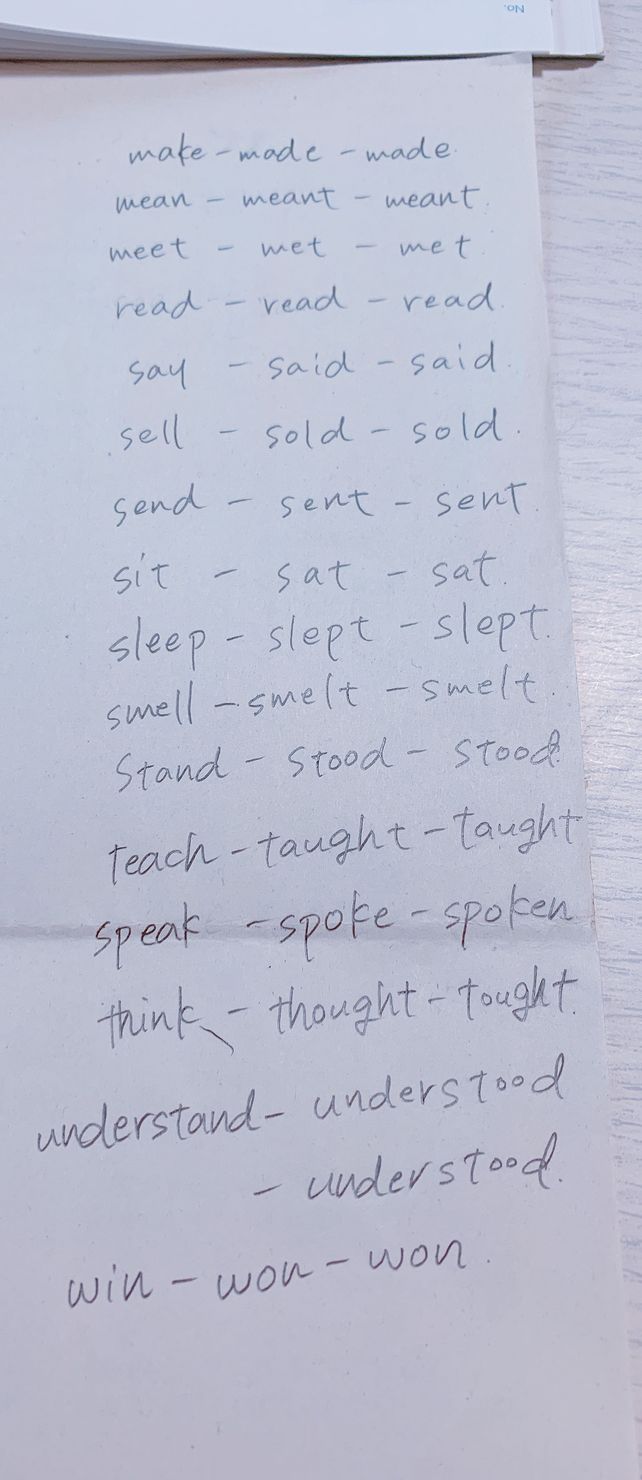 No.
make - made - made.
mean - meant - meant.
meet - met - met.
read - read - read.
say - said - said.
sell - sold - sold.
send - sent - sent.
sit - sat - sat.
sleep - slept - slept.
smell - smelt - smelt.
Stand - stood - stood.
teach - taught - taught
speak - spoke - spoken
think - thought - tought.
understand - understood
- understood.
win - won - won.